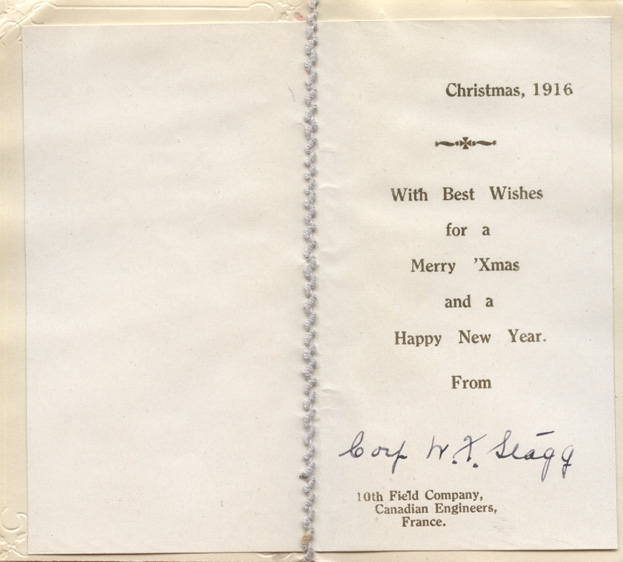 Christmas, 1916
With Best Wishes
for a
Merry 'Xmas
and a
Happy New Year.
From
Corp W. F. Stagg
10th Field Company,
Canadian Engineers,
France.